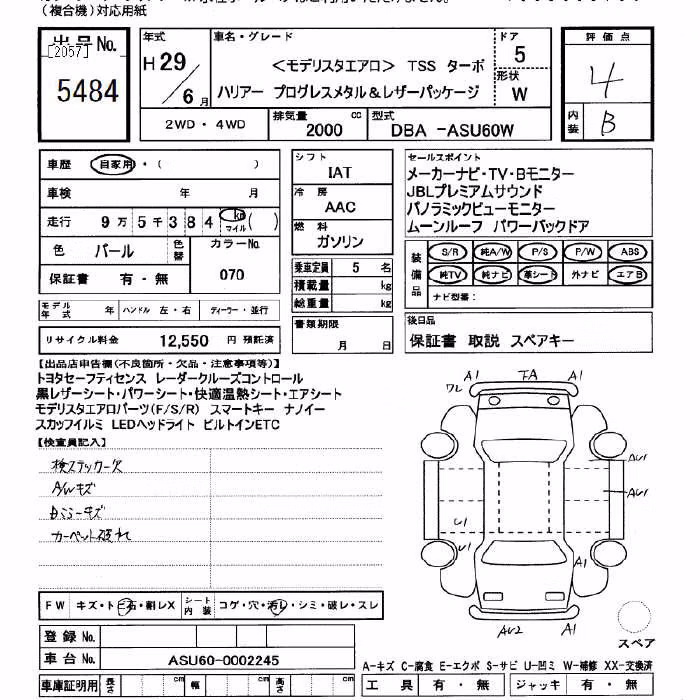 (複合機)対応用紙
出品No.
[2057]
5484
年式
H 29/6 月
車名・グレード
<モデリスタエアロ> TSS ターボ
ハリアー プログレスメタル&レザーパッケージ
ドア
5
形状
W
2WD・4WD
排気量
2000 cc
型式
DBA -ASU60W
評価点
4
内装
B
車歴 自家用・( )
車検 年 月
走行 9万5千384 km マイル ( )
色 パール 色替 カラーNo.
保証書 有・無 070
モデル年式 年 ハンドル 左・右 ディーラー・並行
リサイクル料金 12,550 円 預託済
シフト
IAT
冷房
AAC
燃料
ガソリン
乗車定員 5 名
積載量 kg
総重量 kg
書類期限
月 日
セールスポイント
メーカーナビ・TV・Bモニター
JBLプレミアムサウンド
パノラミックビューモニター
ムーンルーフ パワーバックドア
装備品
S/R 純A/W P/S P/W ABS
純TV 純ナビ 革シート 外ナビ エアB
ナビ型番:
後日品
保証書 取説 スペアキー
【出品店申告欄(不良箇所・欠品・注意事項等)】
トヨタセーフティセンス レーダークルーズコントロール
黒レザーシート・パワーシート・快適温熱シート・エアシート
モデリスタエアロパーツ(F/S/R) スマートキー ナノイー
スカッフイルミ LEDヘッドライト ビルトインETC
【検査員記入】
検ステッカー欠
A/Wキズ
Bミラーキズ
カーペット破れ
FW キズ・トビ石・割レX シート内装 コゲ・穴・汚レ・シミ・破レ・スレ
登録No.
車台No. ASU60-0002245
車庫証明用 長さ cm 幅 cm 高さ cm
A1 FA A1
ワレ
AU1
AU1
U1
U1
A1
AU2 A1
スペア
A-キズ C-腐食 E-エクボ S-サビ U-凹ミ W-補修 XX-交換済
工具 有・無 ジャッキ 有・無